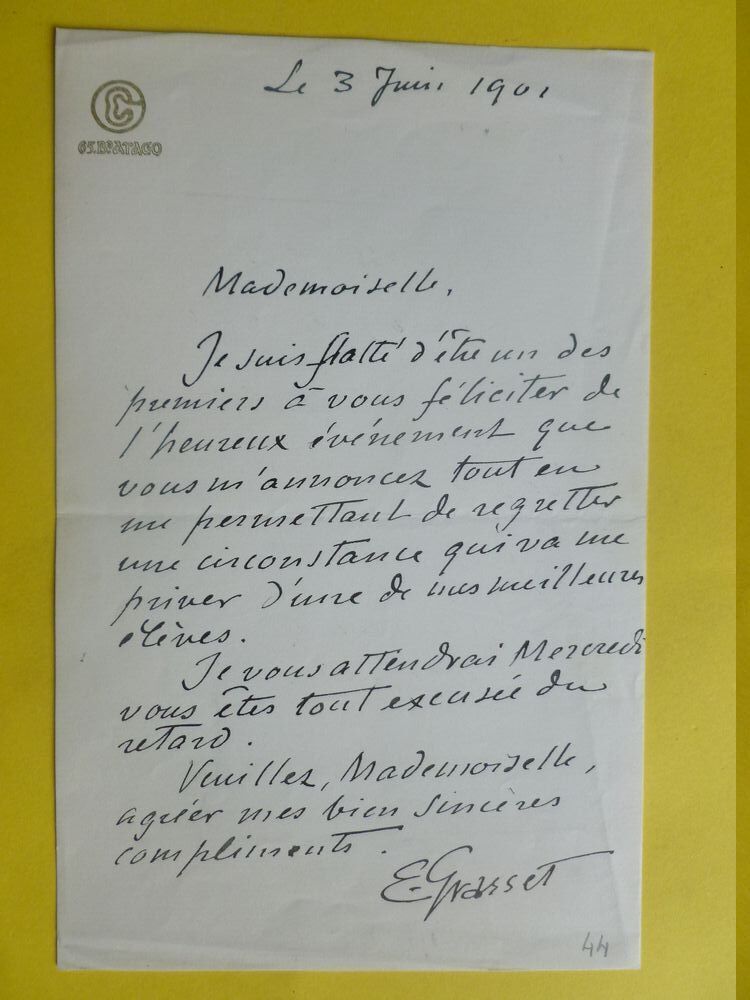 Le 3 Juin 1901
65. BD ARAGO
Mademoiselle,
Je suis flatté d'être un des
premiers à vous féliciter de
l'heureux événement que
vous m'annoncez tout en
me permettant de regretter
une circonstance qui va me
priver d'une de mes meilleures
élèves.
Je vous attendrai Mercredi
vous êtes tout excusée du
retard.
Veuillez, Mademoiselle,
agréer mes bien sincères
compliments.
E. Grasset
44